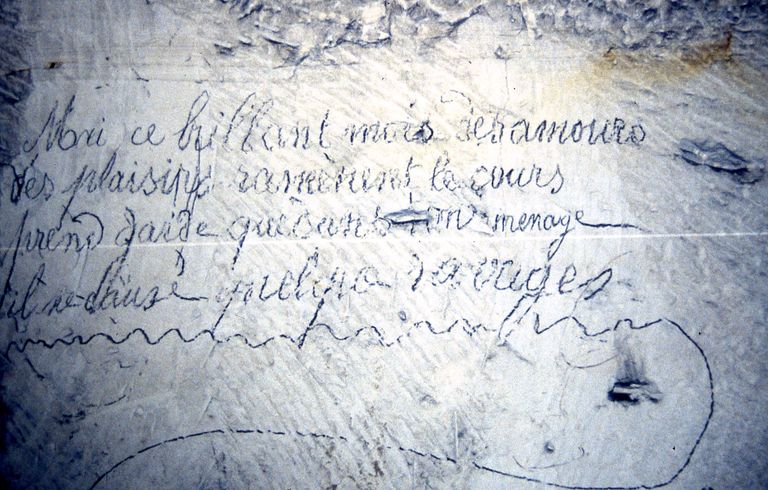 Mai ce brillant mois des amours
des plaisirs ramènent le cours
prend garde que dans ton menage
il ne cause quelque ravages